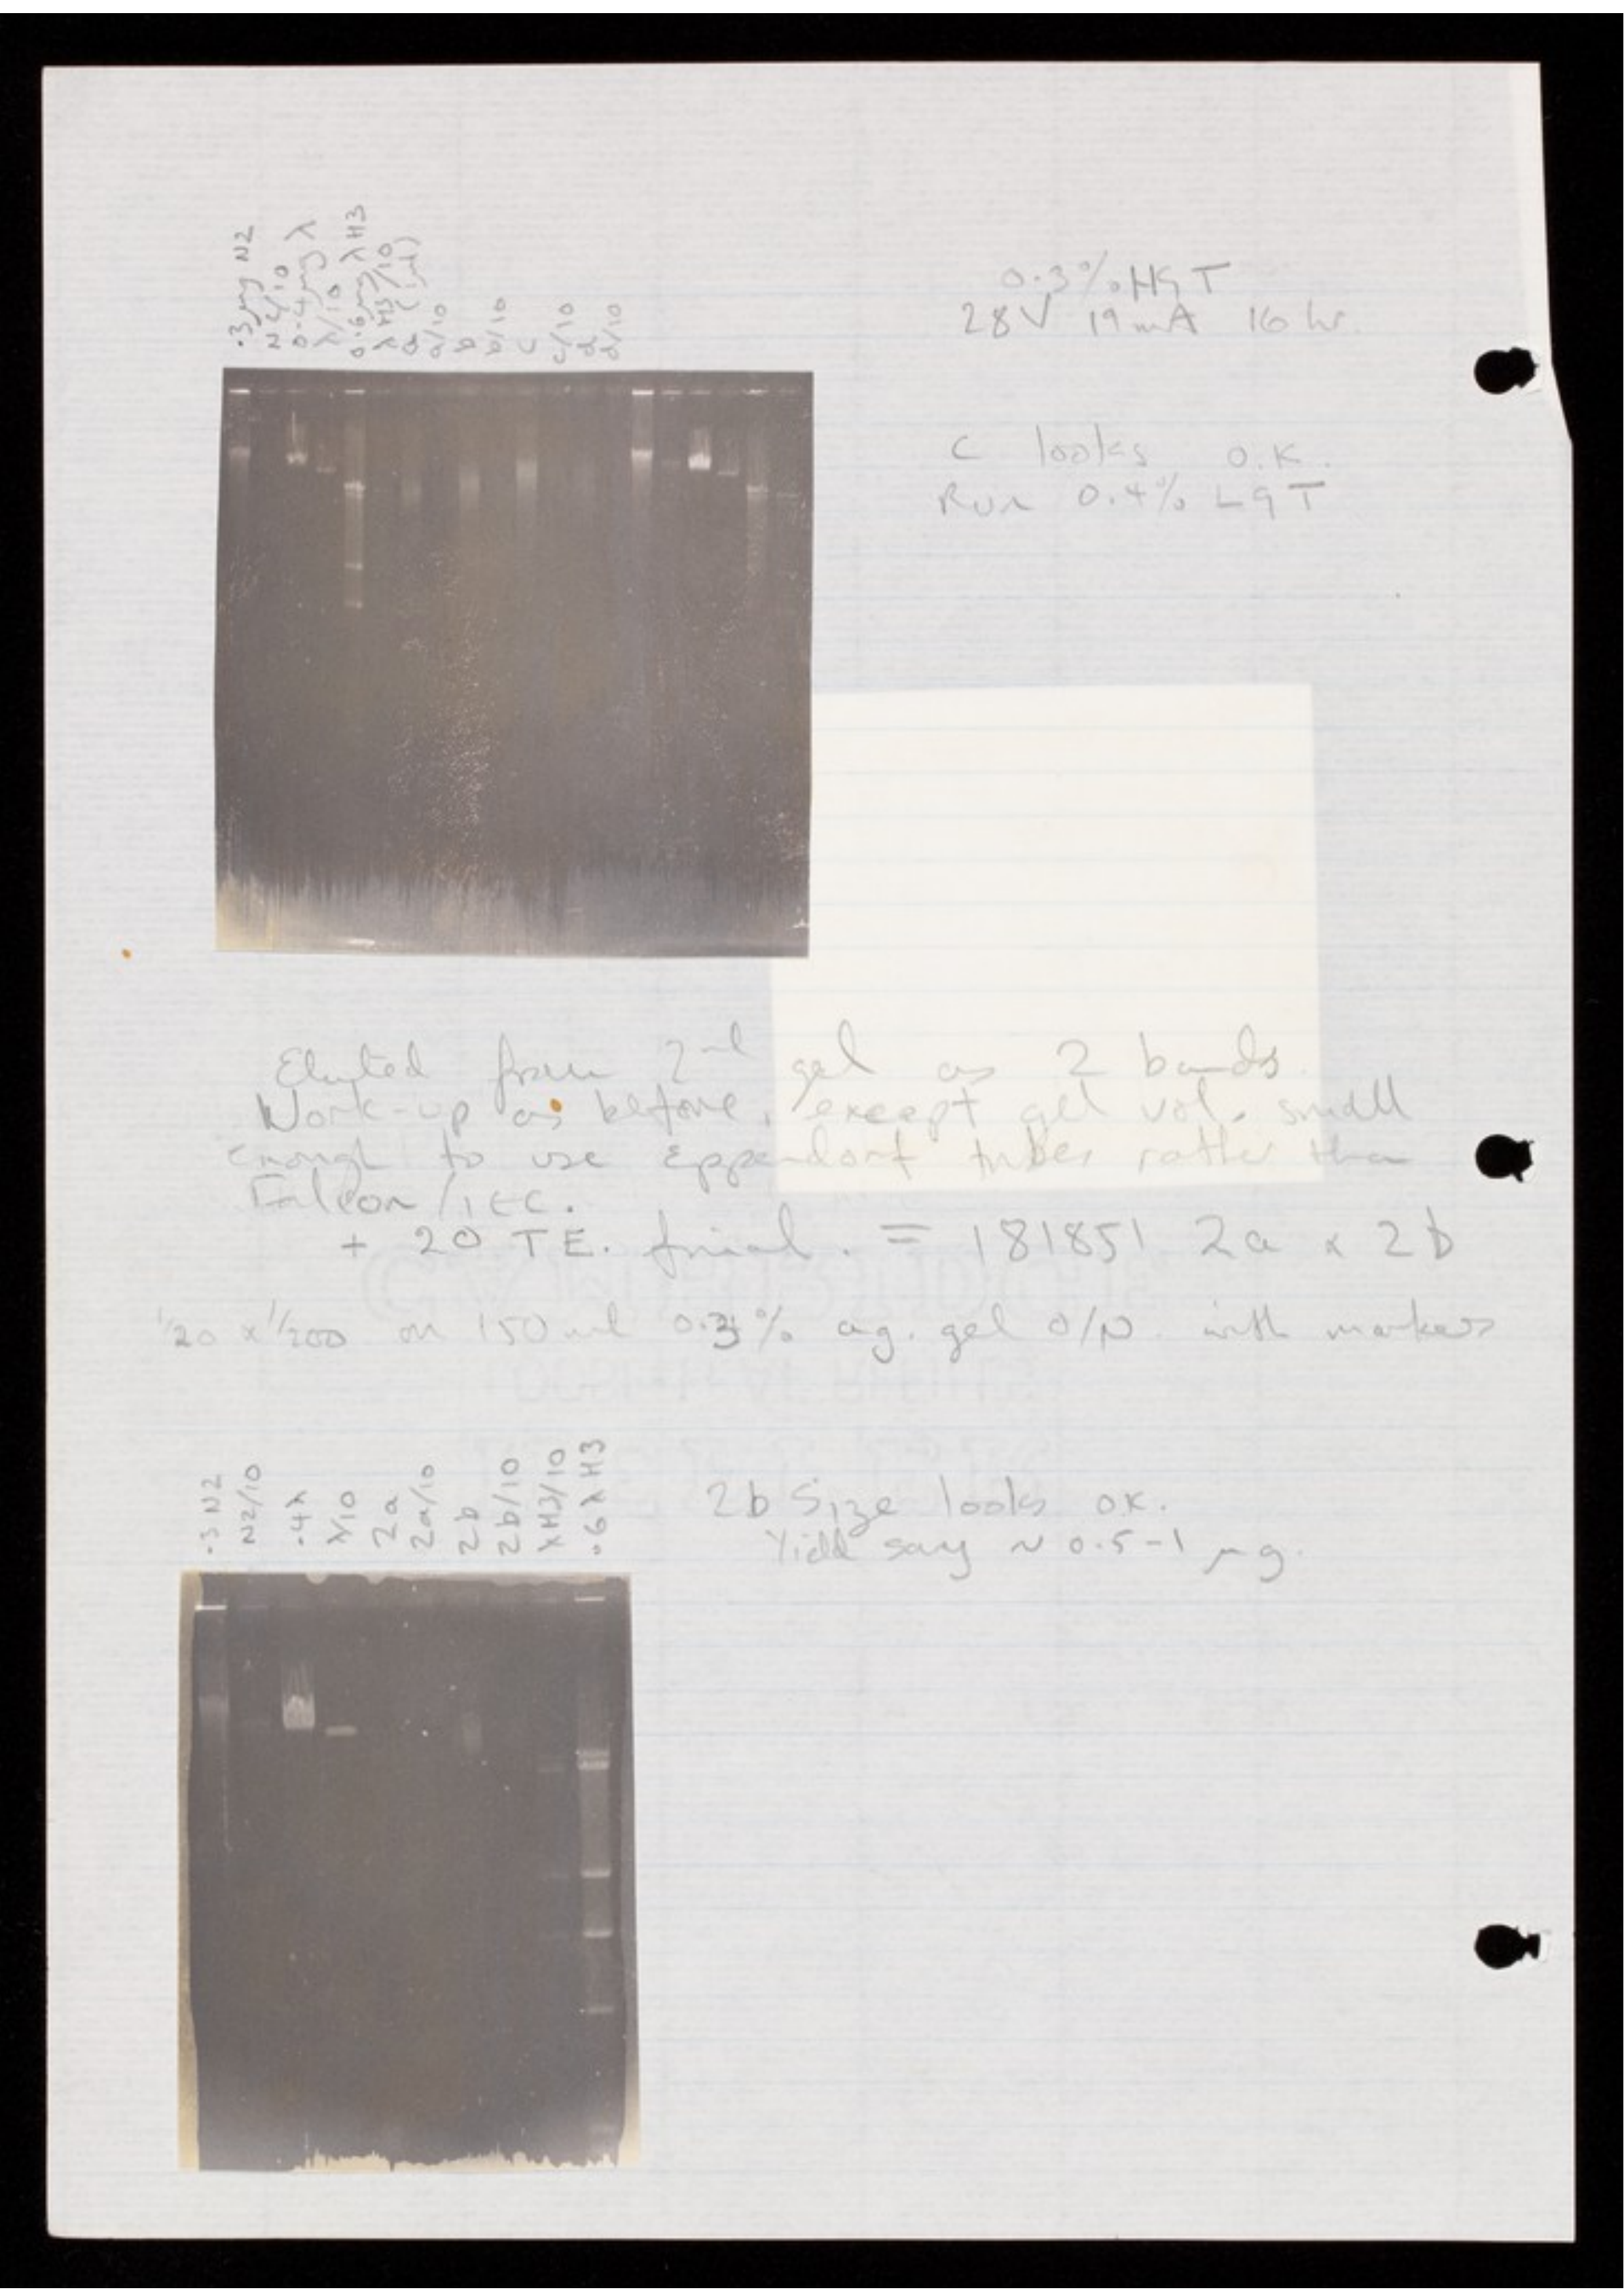 .3 µg N2
N2/10
0.4 µg λ
λ/10
0.6 µg λ H3
λ H3/10
a (1µl)
a/10
b
b/10
c
c/10
d
d/10
0.3% HGT
28V 19mA 16 hr.
C looks O.K.
Run 0.4% LGT
Eluted from 2nd gel as 2 bands.
Work-up as before, except gel vol. small
enough to use Eppendorf tubes rather than
Falcon/IEC.
+ 20 TE. final. = 181851 2a & 2b
1/20 & 1/200 on 150 ml 0.3% ag. gel O/N with markers
.3 N2
N2/10
.4 λ
λ/10
2a
2a/10
2b
2b/10
λH3/10
.6 λ H3
2b Size looks OK.
Yield say ~ 0.5-1 µg.